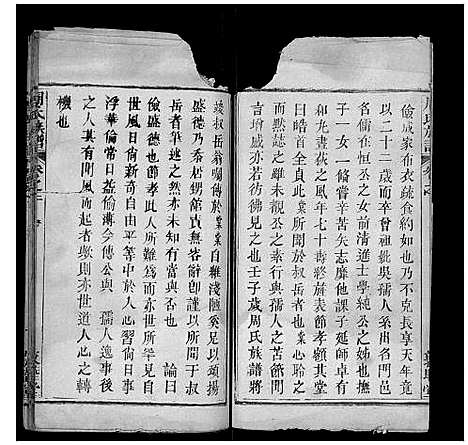 儉成家布衣蔬食約如也乃不克長享天年竟
以二十二歲而卒曾祖妣吳孺人系出名門邑
名儒在恒公之女前清進士學純公之姊也撫
子一女一備嘗辛苦矢志靡他課子延師卓有
和丸畫荻之風年七十壽終歲表節孝顏其堂
曰皓首全貞此業所於叔岳者業心聆之
而黙誌之雖未觀公之素行與孺人之苦節聞
言增感亦若彷彿見之也壬子歲周氏族譜將
竣叔岳囑序於業業自維淺陋奚足以頌揚
盛德乃忝居甥館責無容辭卽謹以所聞于叔
岳者筆述之然亦未知有當與否也　　論曰
儉盛德也節至孝也此人所難爲而世所罕見自
世道日益新奇自由平等中於人心習尚日事
浮華倫常日益偷薄今傳公與　孺人逸事後
之人其有聞風而起者歟則亦世道人心之轉
機也
周氏族譜
卷之